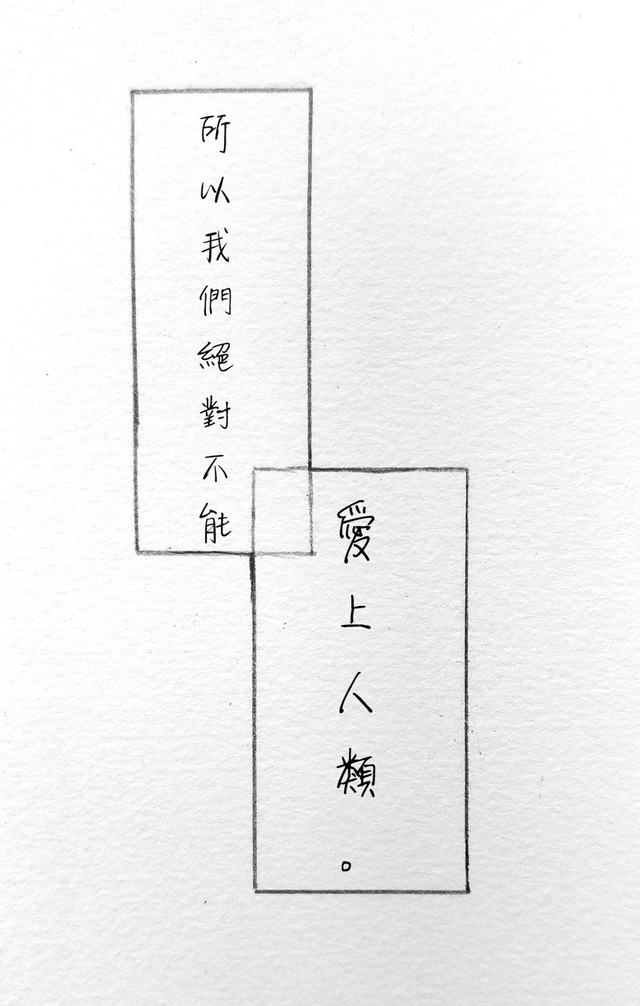 所以我們絕對不能
愛上人類。